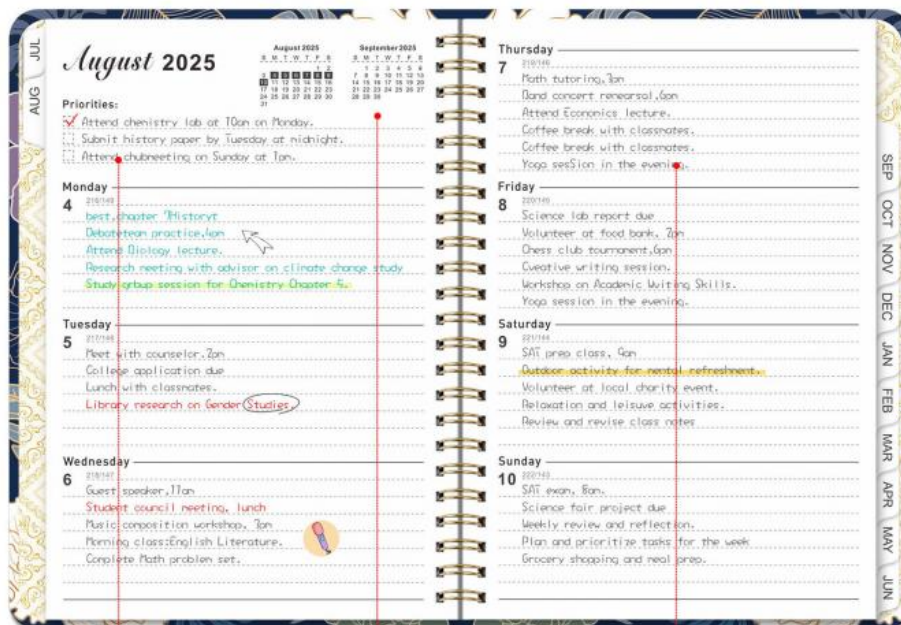 JUL
AUG
August 2025
August 2025
S M T W T F S
1 2
3 4 5 6 7 8 9
10 11 12 13 14 15 16
17 18 19 20 21 22 23
24 25 26 27 28 29 30
31
September 2025
S M T W T F S
1 2 3 4 5 6
7 8 9 10 11 12 13
14 15 16 17 18 19 20
21 22 23 24 25 26 27
28 29 30
Priorities:
Attend chemistry lab at 10am on Monday.
Submit history paper by Tuesday at midnight.
Attend chubneeting on Sunday at 1pm.
Monday
4
216/149
best,chapter 7Historyt
Debateteam practice,4pm
Attend Biology lecture.
Research meeting with advisor on climate change study
Study grbup session for Chemistry Chapter 5.
Tuesday
5
217/148
Meet with counselor,2pm
College application due
Lunch with classmates.
Library research on Gender Studies.
Wednesday
6
218/147
Guest speaker,11am
Student council meeting, lunch
Music composition workshop, 3pm
Morning class:English Literature.
Complete Math problem set.
Thursday
7
219/146
Math tutoring,3pm
Band concert renearsol,6pm
Attend Economics lecture.
Coffee break with classmates.
Coffee break with classmates.
Yoga sesSion in the evening.
Friday
8
220/145
Science lab report due
Volunteer at food bank, 2pm
Chess club tournament,6pm
Cveative writing session.
Workshop on Academic Writing Skills.
Yoga session in the evening.
Saturday
9
221/144
SAT prep class, 9am
Outdoor activity for mental refreshment.
Volunteer at local charity event.
Relaxation and leisuve activities.
Review and revise class notes
Sunday
10
222/143
SAT exam, 8am.
Science fair project due
Weekly review and reflection.
Plan and prioritize tasks for the week
Grocery shopping and meal prep.
SEP
OCT
NOV
DEC
JAN
FEB
MAR
APR
MAY
JUN